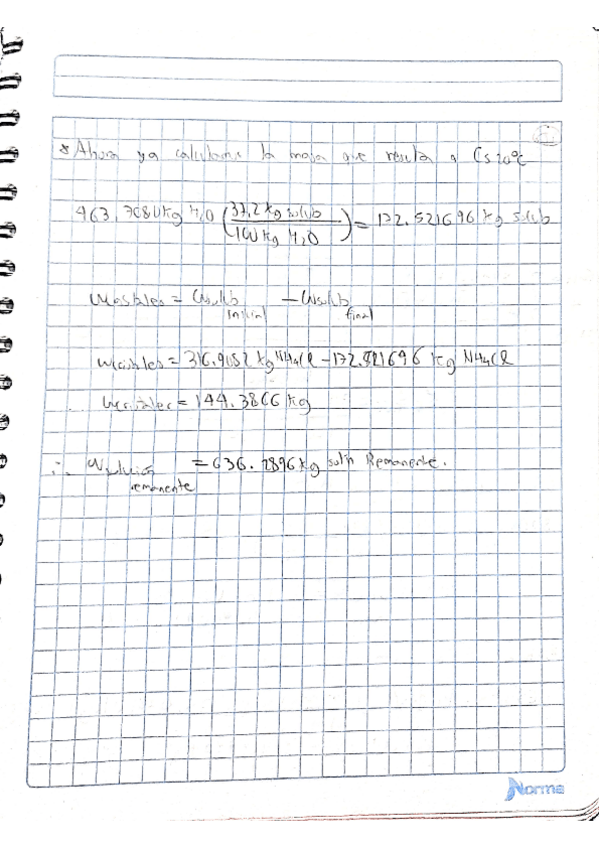 * Ahora ya calculamos la masa que resulta a Cs 20°C
463.7680 kg H2O (37.2 kg solub / 100 kg H2O) = 172.521696 kg solub
Wcristales = Wsolub inicial - Wsolub final
Wcristales = 316.9082 kg NH4Cl - 172.521696 kg NH4Cl
Wcristales = 144.3866 kg
∴ Wsolución remanente = 636.2896 kg soln Remanente.
Norma